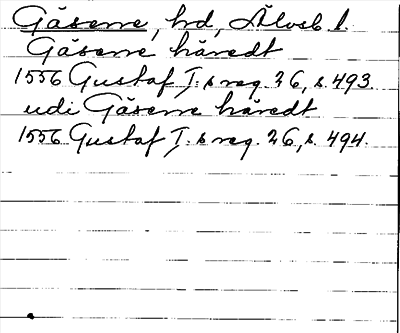 Gäsene, hd, Älvsb l.
Gäsene häredt
1556 Gustaf I:s reg. 26, s. 493.
udi Gäsene häredt
1556 Gustaf I:s reg. 26, s. 494.